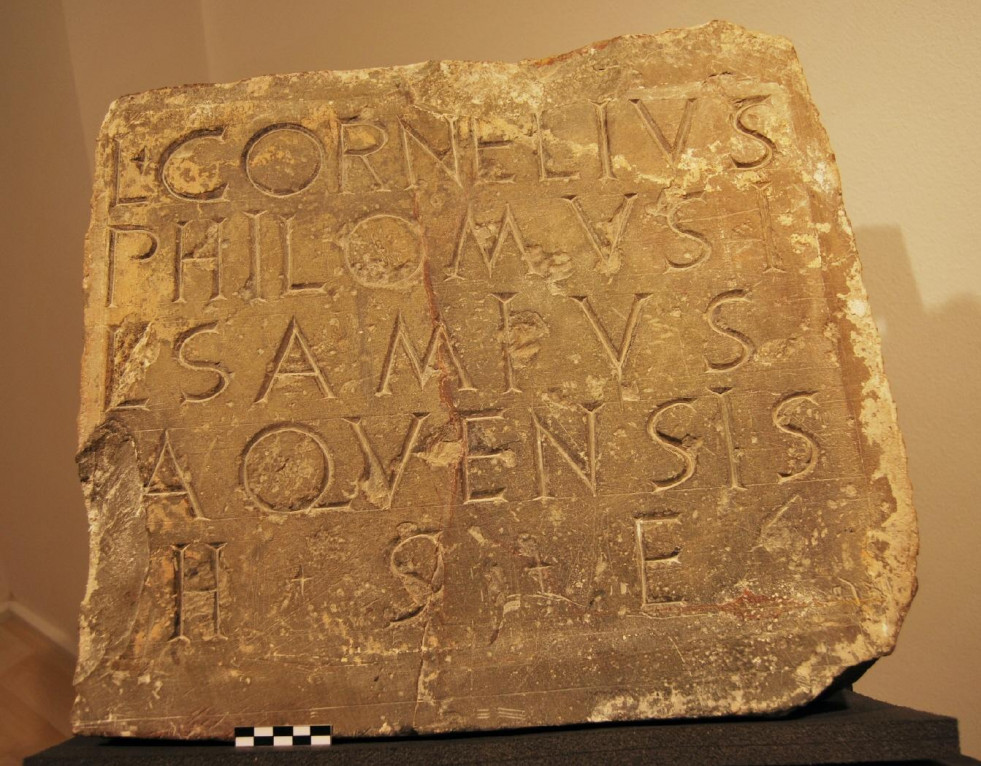 L·CORNELIVS
PHILOMVSI
L·SAMIVS
AQVENSIS
H · S · E